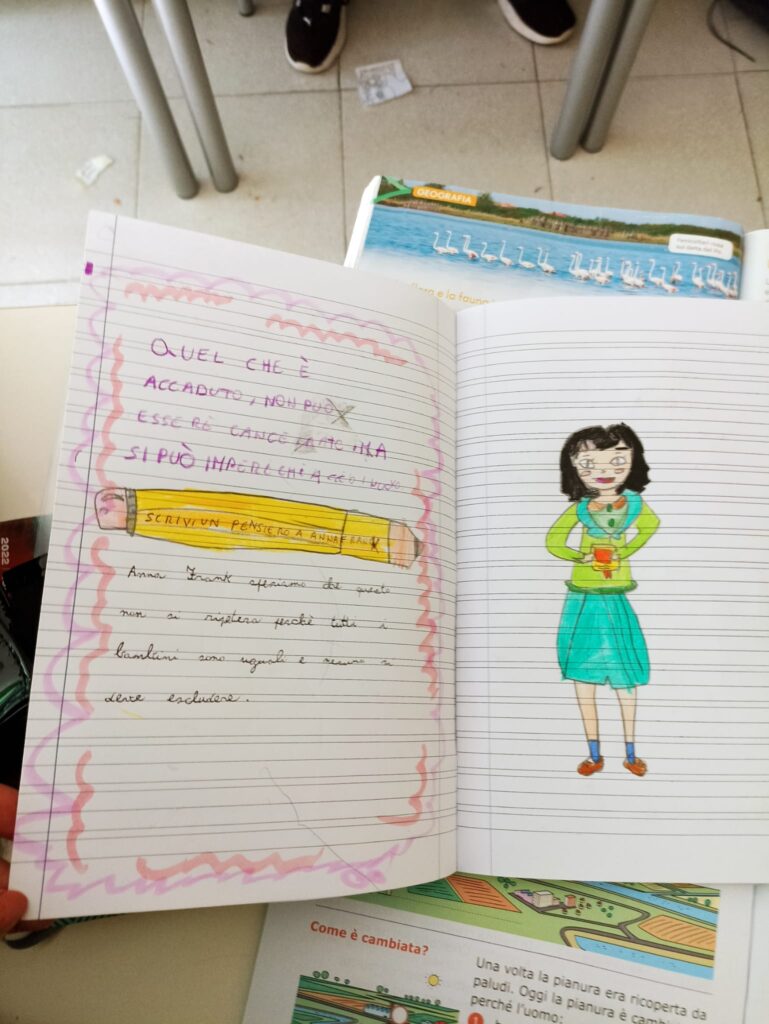 GEOGRAFIA
Fenicotteri rosa
sul delta del Po.
e la fauna
QUEL CHE È
ACCADUTO, NON PUÒ
ESSERE MA
SI PUÒ
SCRIVI UN PENSIERO A ANNA FRANK
Anna Frank speriamo che questo
non si ripetera perchè tutti i
bambini sono uguali e nessuno si
deve escludere.
2022
Come è cambiata?
Una volta la pianura era ricoperta da
paludi. Oggi la pianura è
perché l'uomo:
1